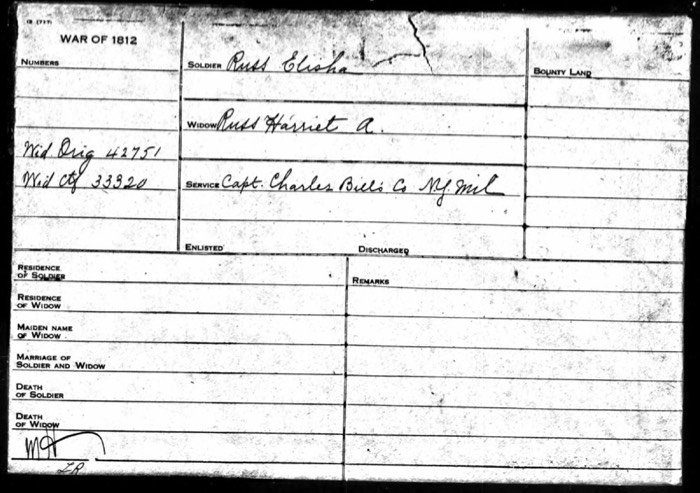 WAR OF 1812
NUMBERS
Wid Orig 42751
Wid Ctf 33320
SOLDIER Russ Elisha
WIDOW Russ Harriet A.
SERVICE Capt. Charles Bill's Co N.Y. Mil
ENLISTED DISCHARGED
BOUNTY LAND
RESIDENCE
OF SOLDIER
RESIDENCE
OF WIDOW
MAIDEN NAME
OF WIDOW
MARRIAGE OF
SOLDIER AND WIDOW
DEATH
OF SOLDIER
DEATH
OF WIDOW
REMARKS